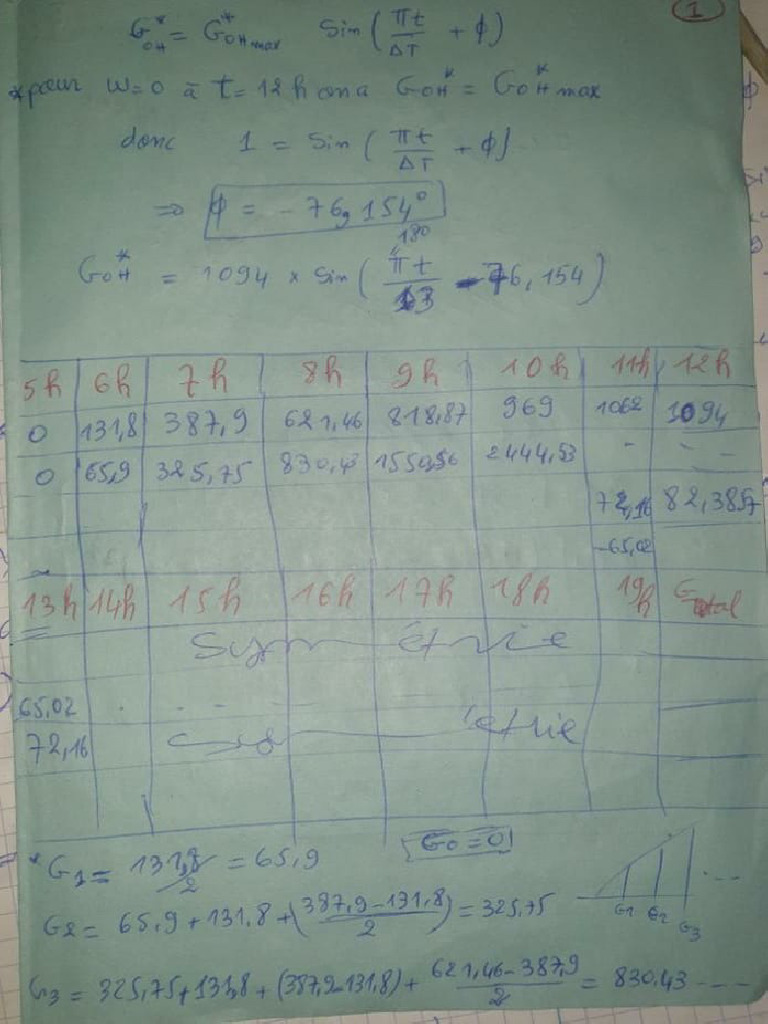 1
G*OH = G*OH max Sin ( πt/ΔT + ϕ )
* pour W=0 à t=12h on a G*OH = G*OH max
donc 1 = Sin ( πt/ΔT + ϕ )
⇒ ϕ = - 76,154°
180
G*OH = 1094 × Sin ( πt/13 - 76,154 )
5h 6h 7h 8h 9h 10h 11h 12h
0 131,8 387,9 621,46 818,87 969 1062 1094
0 65,9 325,75 830,43 1550,56 2444,53 - - -
72,16 82,3857
-65,02
13h 14h 15h 16h 17h 18h 19h Gtotal
Symétrie
65,02
72,16
* G1 = 131,8/2 = 65,9 G0 = 0
G2 = 65,9 + 131,8 + ( (387,9-131,8)/2 ) = 325,75
G1 G2 G3 ...
G3 = 325,75 + 131,8 + (387,9-131,8) + (621,46-387,9)/2 = 830,43 ----